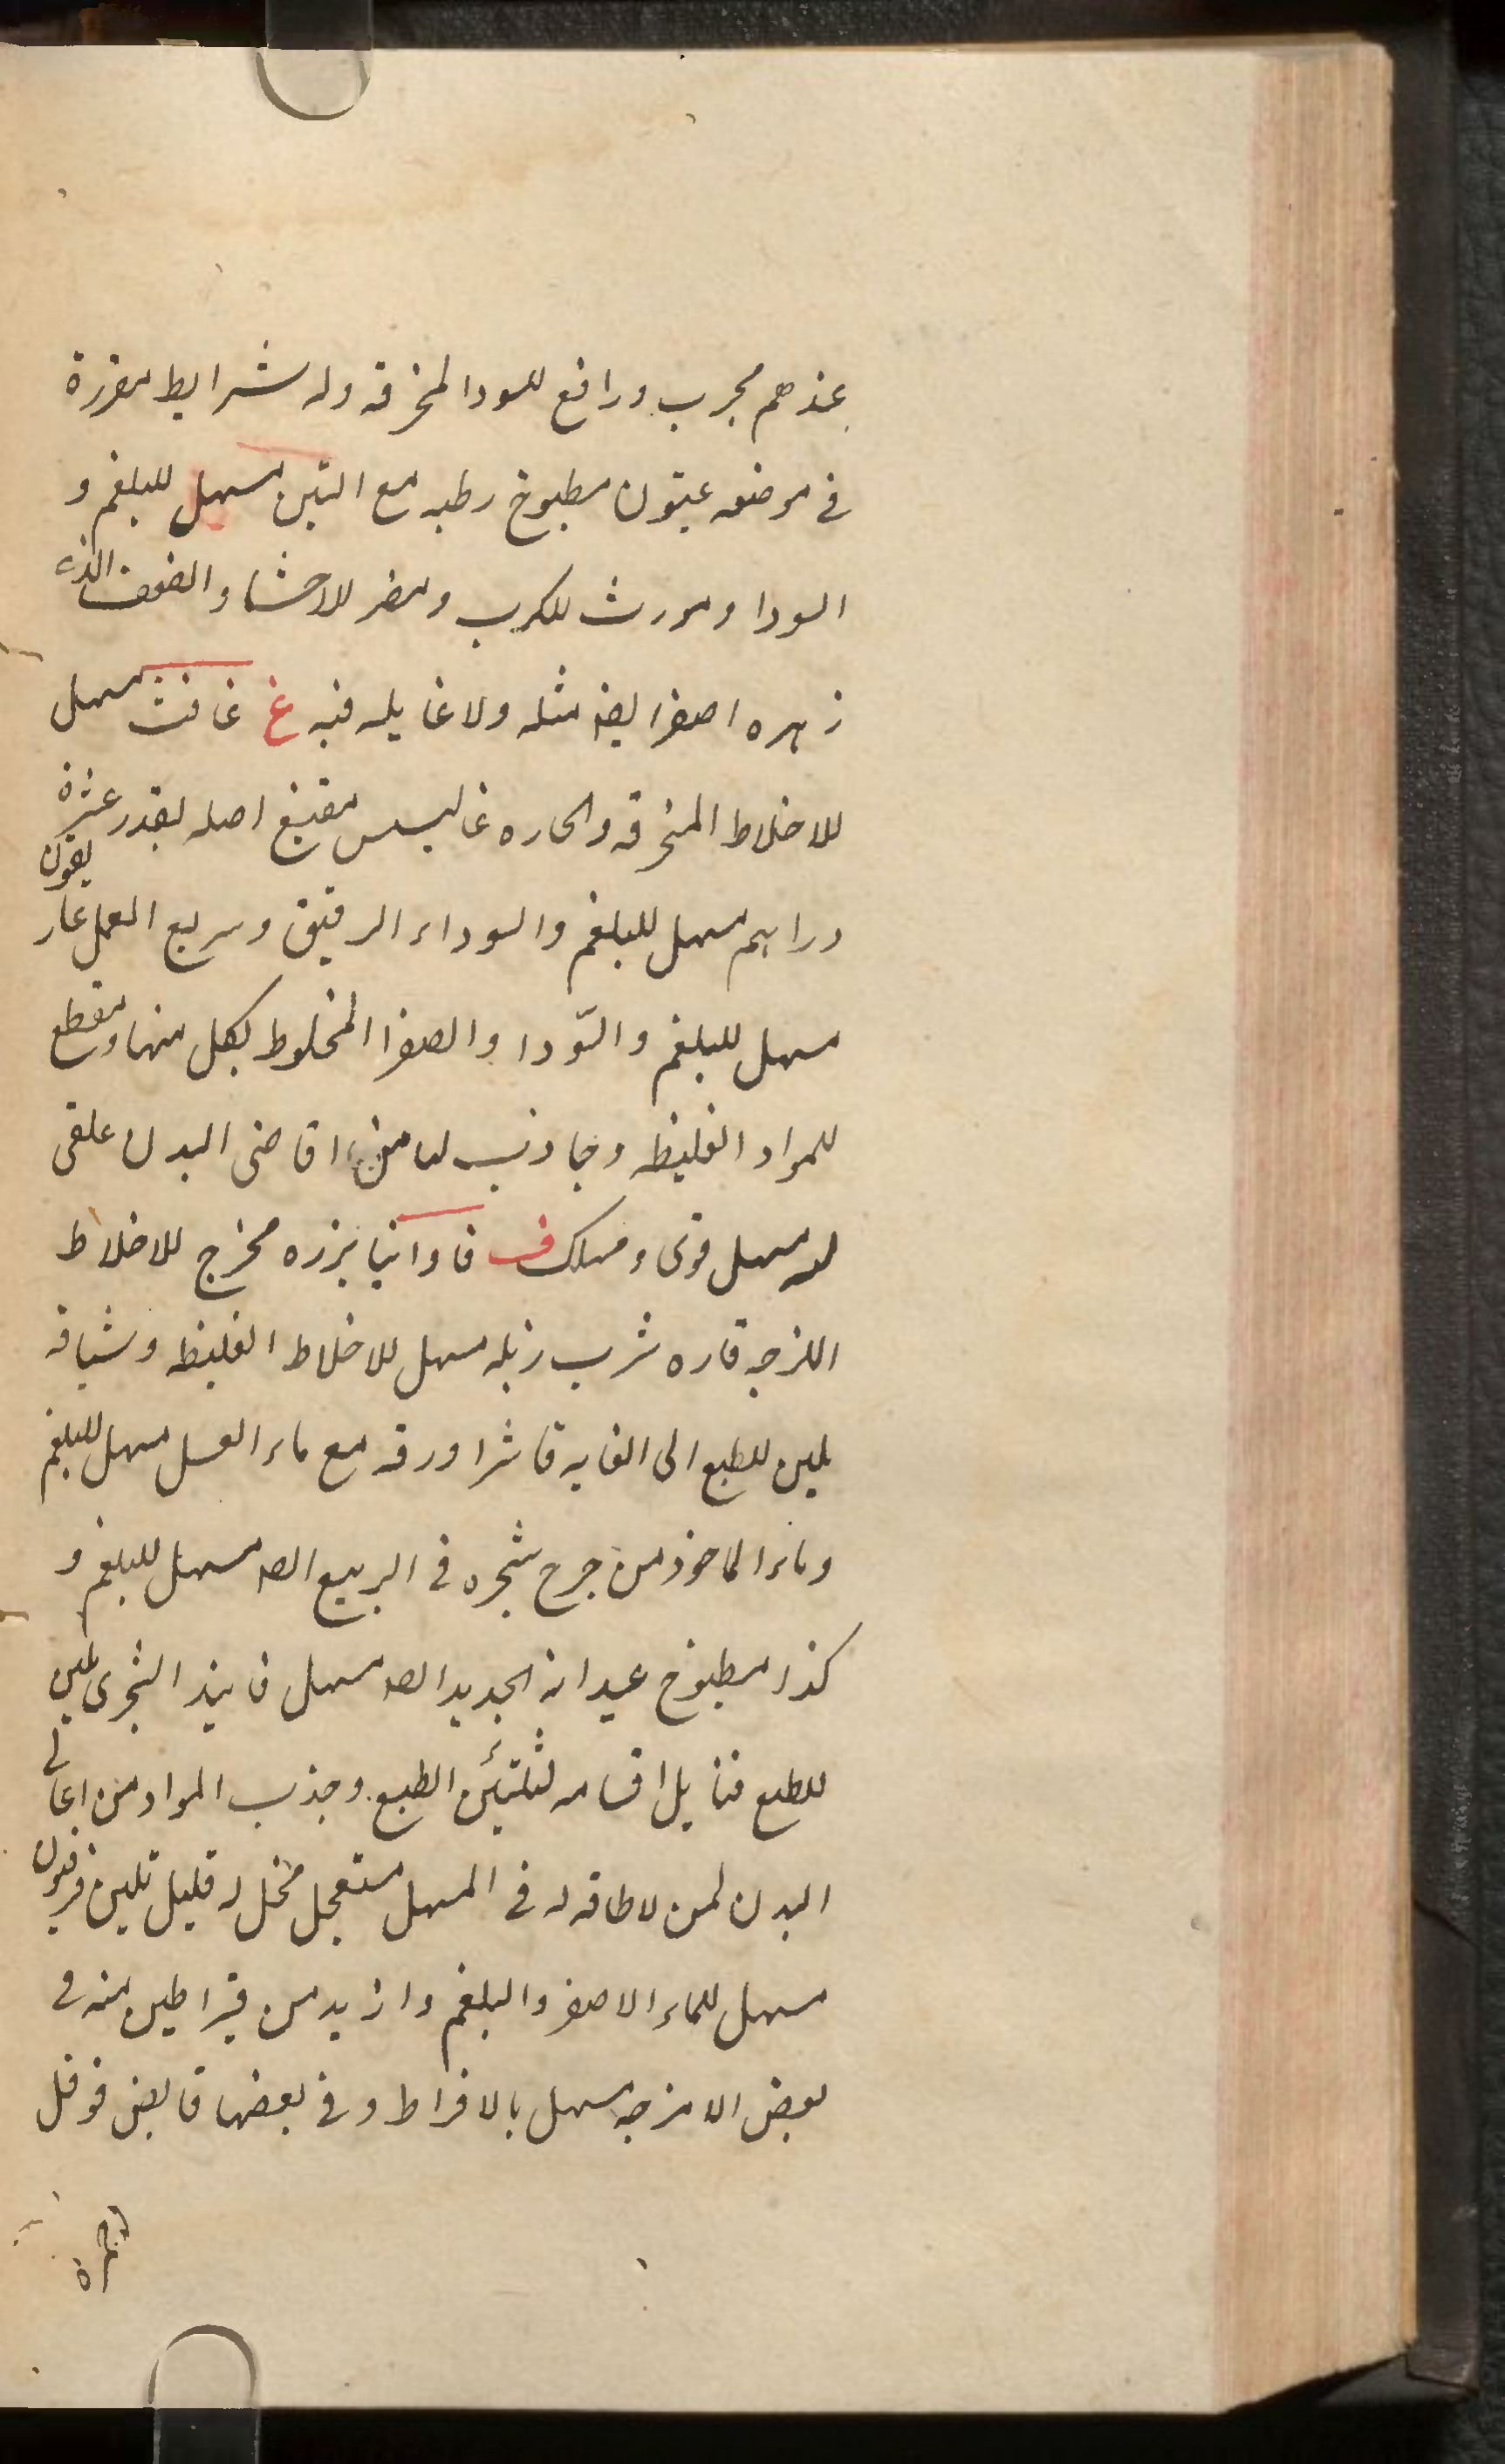 عندهم مجرب ورافع للسودا المخرقه وله شرايط مقررة
فى موضعه عيثون مطبوخ رطبه مع التين مسهل للبلغم و
السودا ومورث للكرب ومضر للاحشا والصنف الذى
زهره اصفر ايضه مثله ولا غايله فيه غ غافث مسهل
للاخلاط المخرقه والحاره غاليسس اصله بقدر عشرة
دراهم مسهل للبلغم والسوداء الرقيق وسريع العمل غاريقون
مسهل للبلغم والسّودا والصفرا المخلوط بكل منها ومقطع
للمواد الغليظه وجاذب لها من اقاصى البدن غلقى
لبنه مسهل قوى ومهلك ف فاوانيا بزره مخرج للاخلاط
اللزجه فاره شرب زبله مسهل للاخلاط الغليظه وشيافه
ملين للطبع الى الغايه فاشرا ورقه مع ماء العسل مسهل للبلغم
وماء الماخوذ من جرح شجره فى الربيع ايضه مسهل للبلغم و
كذا مطبوخ عيدانه الجديد ايضه مسهل فانيذ الشجرى ملين
للطبع فتايل اقسامه لتليّن الطبع وجذب المواد من اعالى
البدن لمن لا طاقه له فى المسهل مستعجل قليل تلين فرفيون
مسهل للماء الاصفر والبلغم وازيد من قيراطين منه فى
بعض الامزجه مسهل بالافراط وفى بعضها قابض فوفل